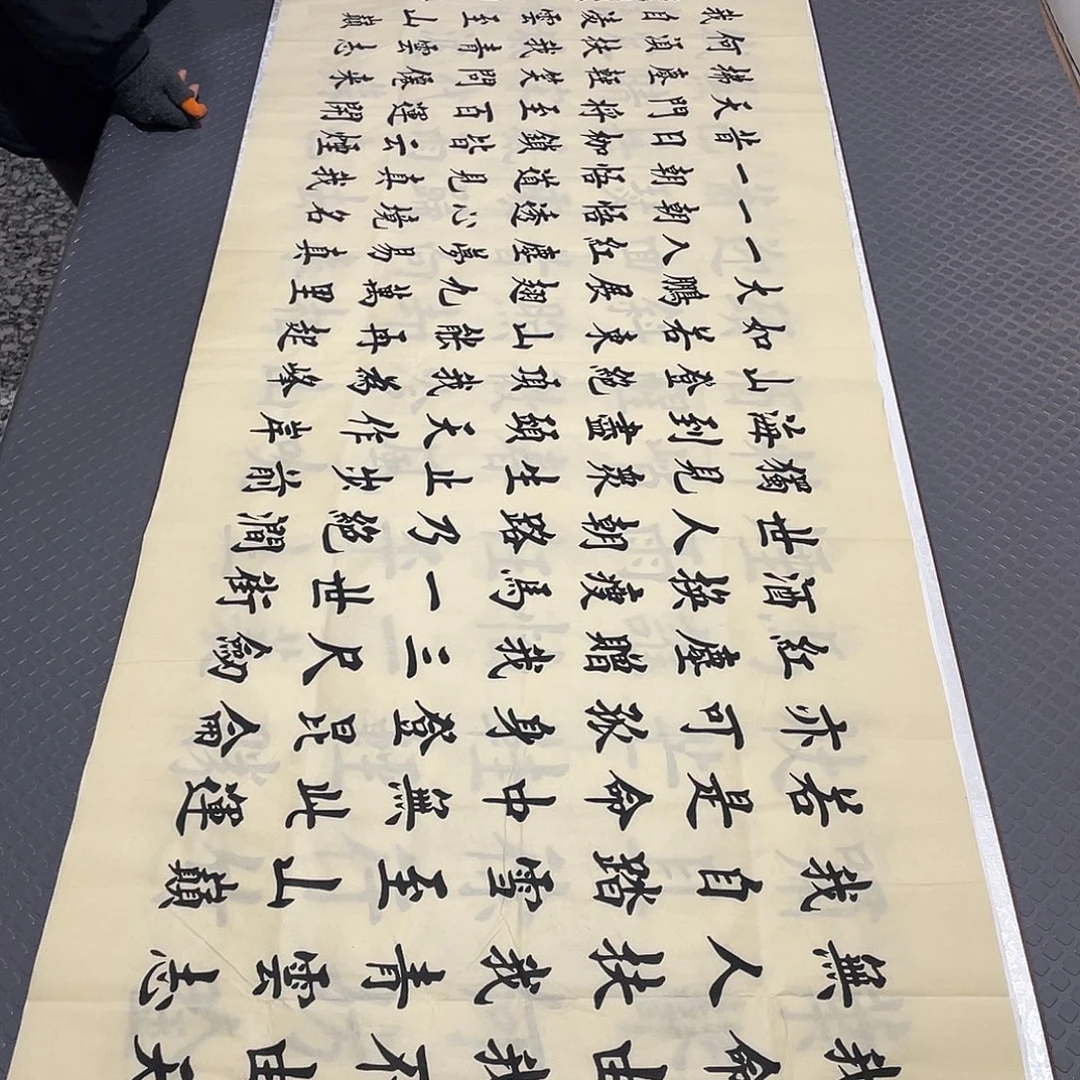 我命由我不由天
無人扶我青雲志
我自踏雪至山巔
若是命中無此運
亦可孤身登昆侖
紅塵贈我三尺劍
酒換瘦馬一世街
世人朝路乃絕澗
獨見眾生止步前
海到盡頭天作岸
山登絕頂我為峰
如若東山能再起
大鵬展翅九萬里
一入紅塵夢易真
一朝悟透心境名
一朝悟道見真我
昔日枷鎖皆云煙
天門將至百運開
拂塵輕笑問儂來
何須扶我青雲志
我自凌雲至山巔